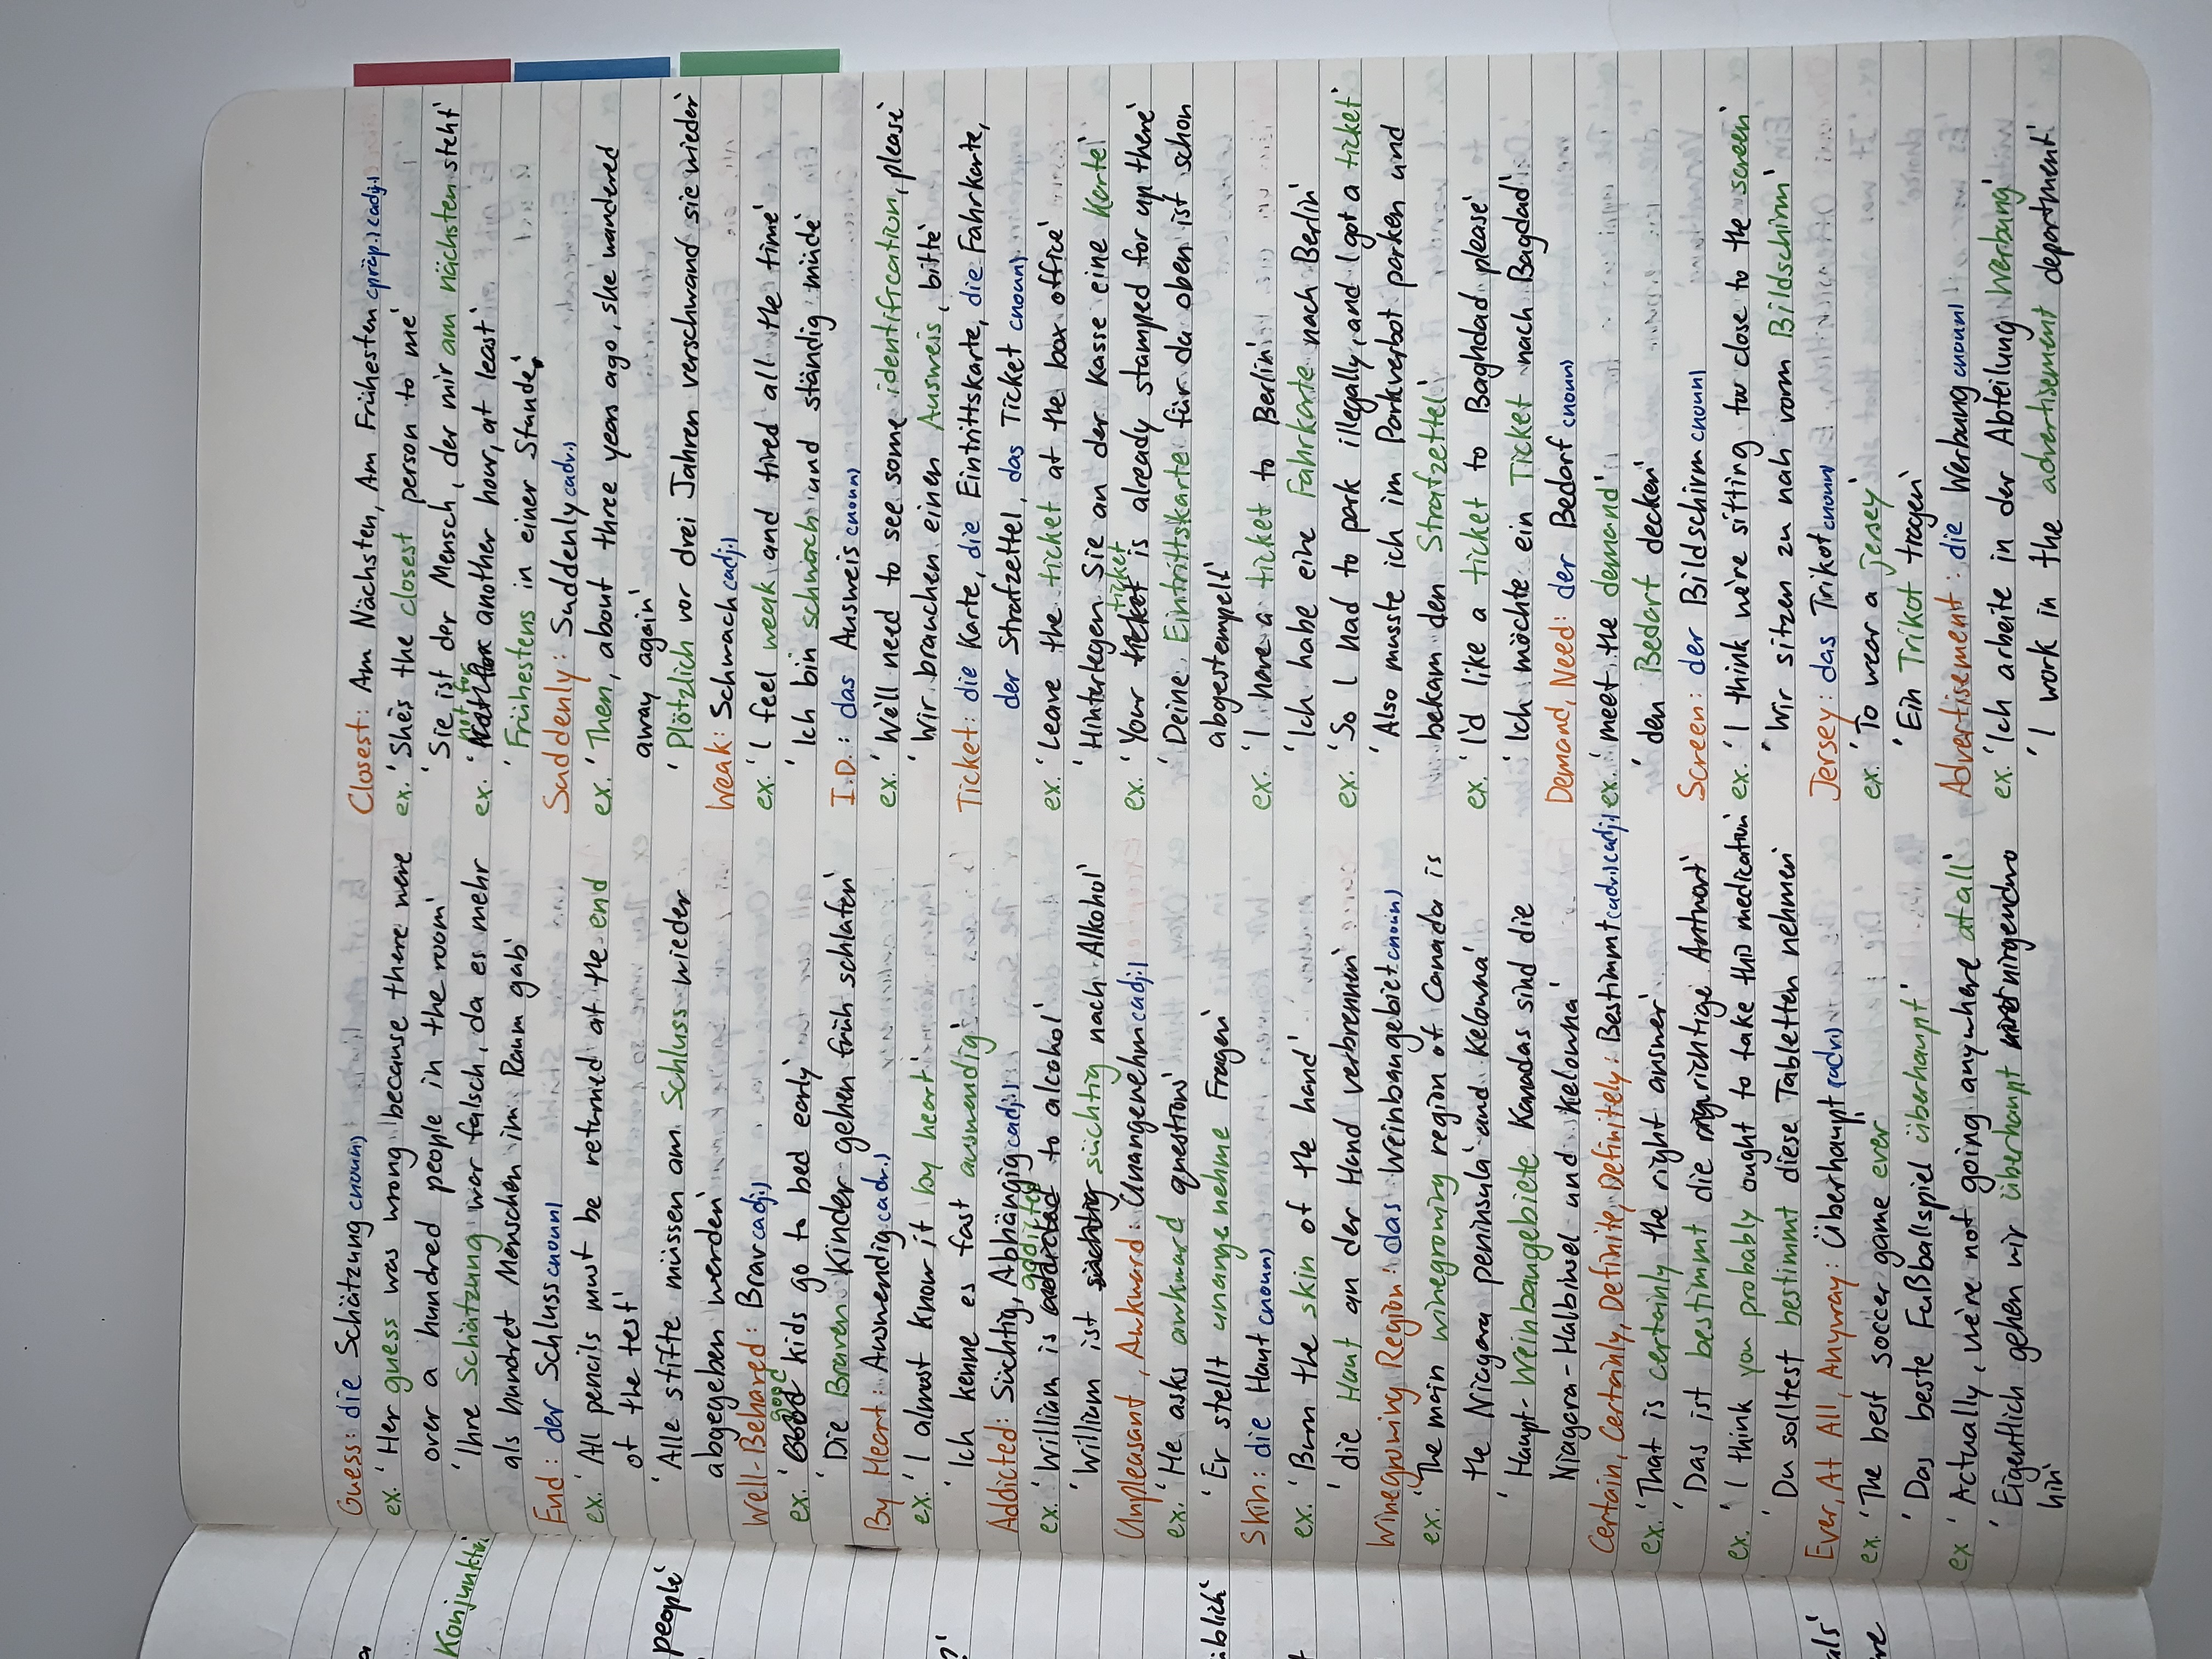 Konjunktiv
people'
üblich'
Guess: die Schätzung (noun)
ex. 'Her guess was wrong because there were
over a hundred people in the room'
'Ihre Schätzung war falsch, da es mehr
als hundret Menschen im Raum gab'
End: der Schluss (noun)
ex. 'All pencils must be returned at the end
of the test'
'Alle stifte müssen am Schluss wieder
abgegeben werden'
Well-Behaved: Brav (adj.)
ex. 'good kids go to bed early'
'Die Braven Kinder gehen früh schlafen'
By Heart: Auswendig (adv.)
ex. 'I almost know it by heart'
'Ich kenne es fast auswendig'
Addicted: Süchtig, Abhängig (adj.)
ex. 'William is addicted to alcohol'
'William ist süchtig nach Alkohol'
Unpleasant, Awkward: Unangenehm (adj.)
ex. 'He asks awkward questions'
'Er stellt unangenehme Fragen'
Skin: die Haut (noun)
ex. 'Burn the skin of the hand'
'die Haut an der Hand verbrennen'
Winegrowing Region: das Weinbaugebiet (noun)
ex. 'The main winegrowing region of Canada is
the Niagara peninsula and Kelowna'
'Haupt-Weinbaugebiete Kanadas sind die
Niagara-Halbinsel und Kelowna'
Certain, Certainly, Definite, Definitely: Bestimmt (adv.) (adj.)
ex. 'That is certainly the right answer'
'Das ist bestimmt die richtige Antwort'
ex. 'I think you probably ought to take this medication'
'Du solltest bestimmt diese Tabletten nehmen'
Ever, At All, Anyway: Überhaupt (adv.)
ex. 'The best soccer game ever
'Das beste Fußballspiel überhaupt'
ex 'Actually, we're not going anywhere at all'
'Eigentlich gehen wir überhaupt nirgendwo
hin'
Closest: Am Nächsten, Am Frühesten (präp.) (adj.)
ex. 'She's the closest person to me'
'Sie ist der Mensch, der mir am nächsten steht'
ex. 'not for another hour, at least'
'Frühestens in einer Stunde'
Suddenly: Suddenly (adv.)
ex. 'Then, about three years ago, she wandered
away again'
'Plötzlich vor drei Jahren verschwand sie wieder'
Weak: Schwach (adj.)
ex. 'I feel weak and tired all the time'
'Ich bin schwach und ständig müde'
I.D.: das Ausweis (noun)
ex. 'We'll need to see some identification, please'
'Wir brauchen einen Ausweis, bitte'
Ticket: die Karte, die Eintrittskarte, die Fahrkarte,
der Strafzettel, das Ticket (noun)
ex. 'Leave the ticket at the box office'
'Hinterlegen Sie an der Kasse eine Karte'
ex. 'Your ticket is already stamped for up there'
'Deine Eintrittskarte für da oben ist schon
abgestempelt'
ex. 'I have a ticket to Berlin'
'Ich habe eine Fahrkarte nach Berlin'
ex. 'So I had to park illegally, and I got a ticket'
'Also musste ich im Parkverbot parken und
bekam den Strafzettel'
ex. 'I'd like a ticket to Baghdad please'
'Ich möchte ein Ticket nach Bagdad'
Demand, Need: der Bedarf (noun)
ex. 'meet the demand'
'den Bedarf decken'
Screen: der Bildschirm (noun)
ex. 'I think we're sitting too close to the screen'
'Wir sitzen zu nah vorm Bildschirm'
Jersey: das Trikot (noun)
ex. 'To wear a jersey'
'Ein Trikot tragen'
Advertisement: die Werbung (noun)
ex. 'Ich arbeite in der Abteilung Werbung'
'I work in the advertisement department'